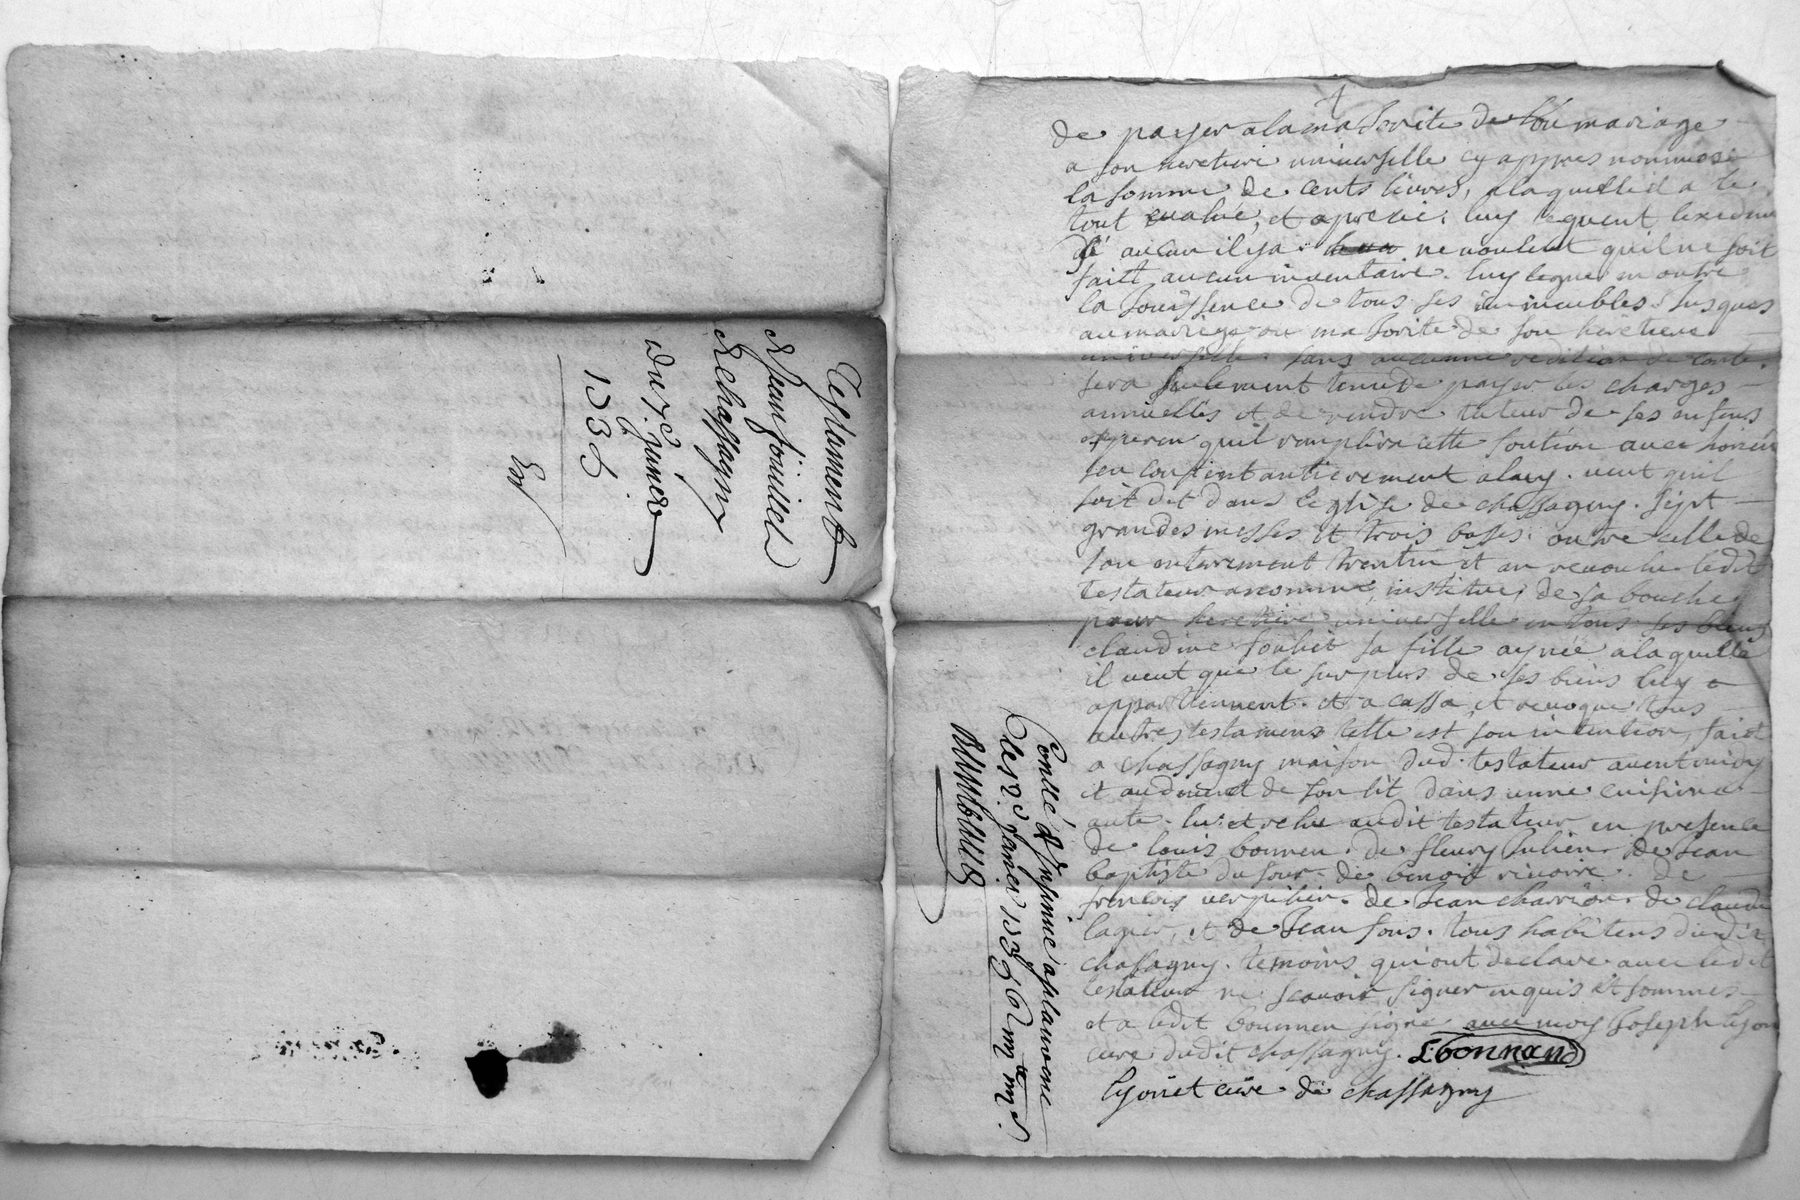 Testament
de Jean fouillet
de chassagny
du 7e Janvier
1736
de payer a la maJorite de / ou mariage
a son heretiere universselle cy appres nommeé
la somme de cents livres, a laquelle il a le
tout evalué, et apretié. luy leguent lexedent
sé aucun il y a. ne voulent quil ne soit
faitt aucun inventaire. luy legue en outre
la Jouissence de tous ses immeubles Jusques
au mariage ou maJorite de son heretiere
universelle. sans aucunne redition de conte.
sera seulement tenu de payer les charges
annuelles et de rendre tuteur de ses enfens
esperen quil remplira cette fontion avec honeur
sen confient antierement a luy. veut quil
soit dit dans leglise de chassagny. sept
grandes messes et trois basses. outre celle de
son enterrement et an revoulu ledit
testateur a nommé, institué, de sa bouche
pour heretiere universelle en tous ses biens
claudine foulliet sa fille aynée a laquelle
il veut que le surplus de ses biens luy
appartiennent. et a cassa, et revoque tous
autres testamens telle est son intention, fait
a chassagny maison dud. testateur avent midy
et au devent de son lit dans unne cuisinne
aute. lu et relu audit testateur en presence
de louis bonnen. de fleury Julien. de Jean
baptiste dufour. de benoit rivoire. de
francois verpilier. de Jean charvion. de claude
lagier, et de Jean fons. tous habitens dudit
chassagny. temoins qui ont declaré avec ledit
testateur ne scavoir signer enquis et sommes
et a ledit bonnen signé avec moy Joseph lyon
curé dudit chassagny. L bonnand
lyonet curé de chassagny
Conllé & Insinué
les 12e Janvier 1736